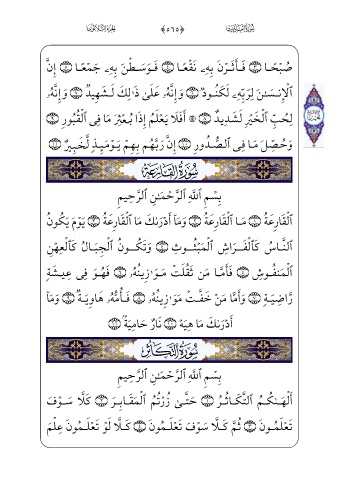 سُورَةُ العَادِيَاتِ ﴿٥٦٥﴾ الجُزْءُ الثَّلَاثُونَ
صُبْحًا ۝ فَأَثَرْنَ بِهِۦ نَقْعًا ۝ فَوَسَطْنَ بِهِۦ جَمْعًا ۝ إِنَّ
ٱلْإِنسَـٰنَ لِرَبِّهِۦ لَكَنُودٌ ۝ وَإِنَّهُۥ عَلَىٰ ذَٰلِكَ لَشَهِيدٌ ۝ وَإِنَّهُۥ
لِحُبِّ ٱلْخَيْرِ لَشَدِيدٌ ۝ ۞ أَفَلَا يَعْلَمُ إِذَا بُعْثِرَ مَا فِى ٱلْقُبُورِ ۝
وَحُصِّلَ مَا فِى ٱلصُّدُورِ ۝ إِنَّ رَبَّهُم بِهِمْ يَوْمَئِذٍ لَّخَبِيرٌۢ ۝
سُورَةُ القَارِعَةِ
بِسْمِ ٱللَّهِ ٱلرَّحْمَـٰنِ ٱلرَّحِيمِ
ٱلْقَارِعَةُ ۝ مَا ٱلْقَارِعَةُ ۝ وَمَآ أَدْرَىٰكَ مَا ٱلْقَارِعَةُ ۝ يَوْمَ يَكُونُ
ٱلنَّاسُ كَٱلْفَرَاشِ ٱلْمَبْثُوثِ ۝ وَتَكُونُ ٱلْجِبَالُ كَٱلْعِهْنِ
ٱلْمَنفُوشِ ۝ فَأَمَّا مَن ثَقُلَتْ مَوَٰزِينُهُۥ ۝ فَهُوَ فِى عِيشَةٍ
رَّاضِيَةٍ ۝ وَأَمَّا مَنْ خَفَّتْ مَوَٰزِينُهُۥ ۝ فَأُمُّهُۥ هَاوِيَةٌ ۝ وَمَآ
أَدْرَىٰكَ مَا هِيَهْ ۝ نَارٌ حَامِيَةٌۢ ۝
سُورَةُ التَّكَاثُرِ
بِسْمِ ٱللَّهِ ٱلرَّحْمَـٰنِ ٱلرَّحِيمِ
أَلْهَىٰكُمُ ٱلتَّكَاثُرُ ۝ حَتَّىٰ زُرْتُمُ ٱلْمَقَابِرَ ۝ كَلَّا سَوْفَ
تَعْلَمُونَ ۝ ثُمَّ كَلَّا سَوْفَ تَعْلَمُونَ ۝ كَلَّا لَوْ تَعْلَمُونَ عِلْمَ